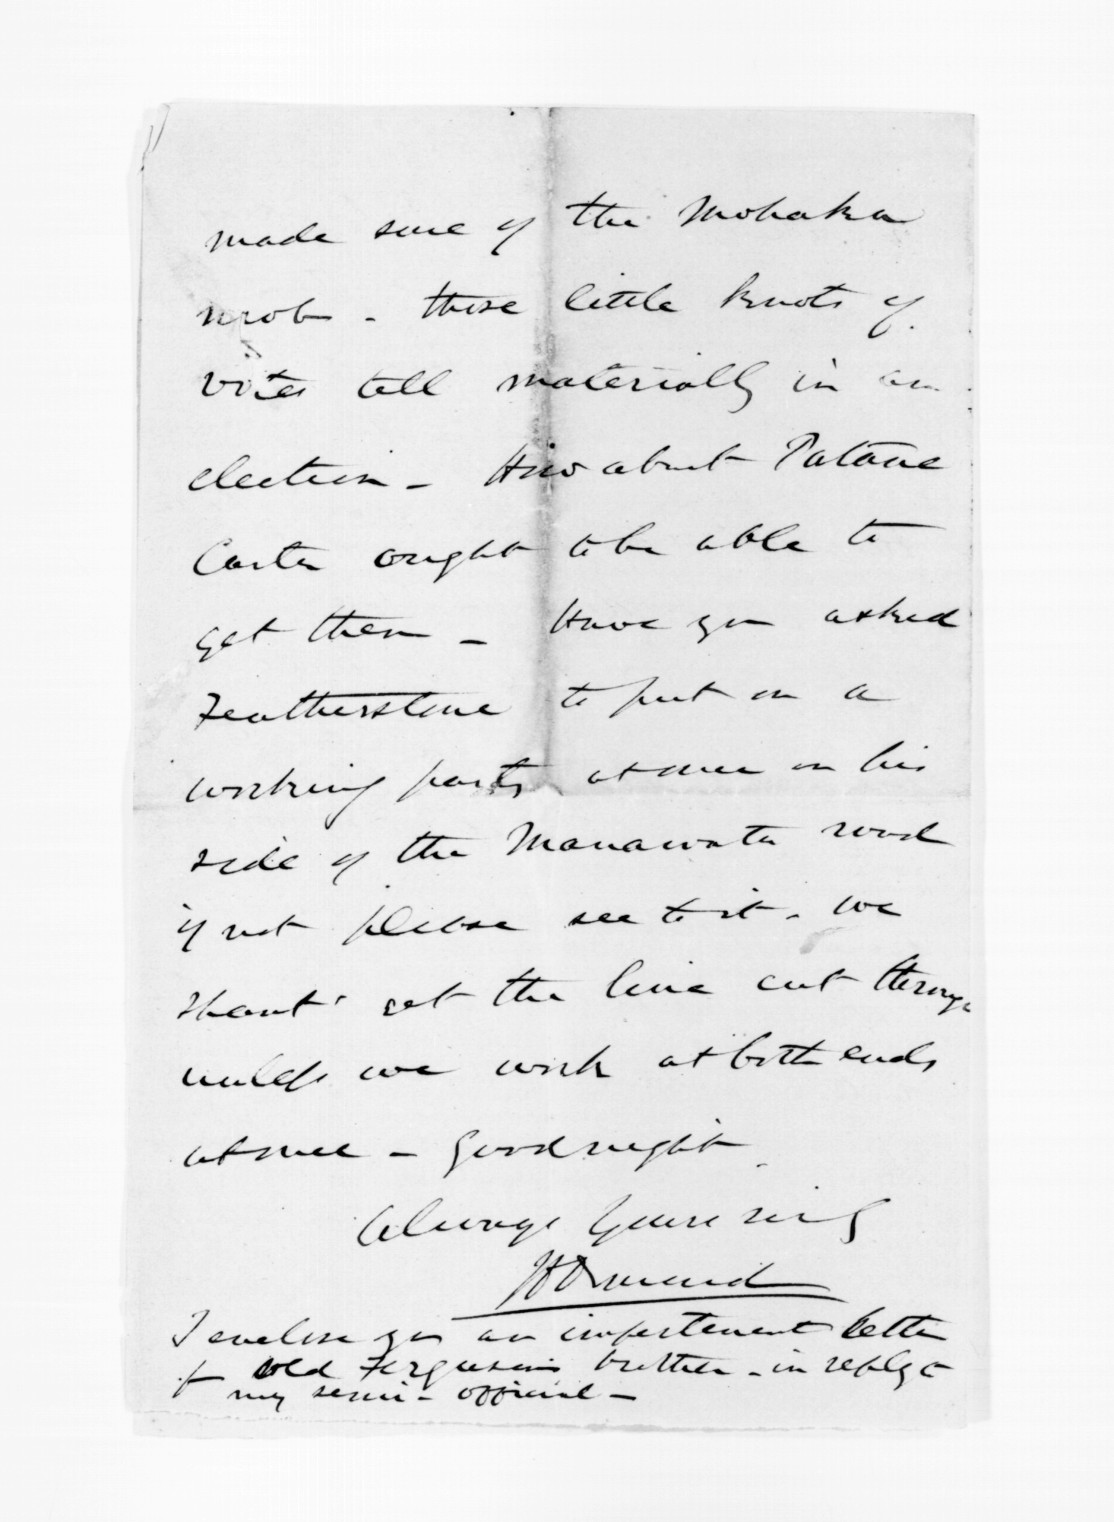 made sure of the Mohaka
mob - those little knots of
votes tell materially in an
election - How about Patane
Carter ought to be able to
get them - Have you asked
Featherstone to put on a
working party at once on his
side of the Manawatu road
if not please see to it. we
shant' get the line cut through
unless we work at both ends
at once - Good night
Always Yours
JD Ormond
I enclose you an impertinent letter
fm old Ferguson's brother - in reply to
my semi-official -